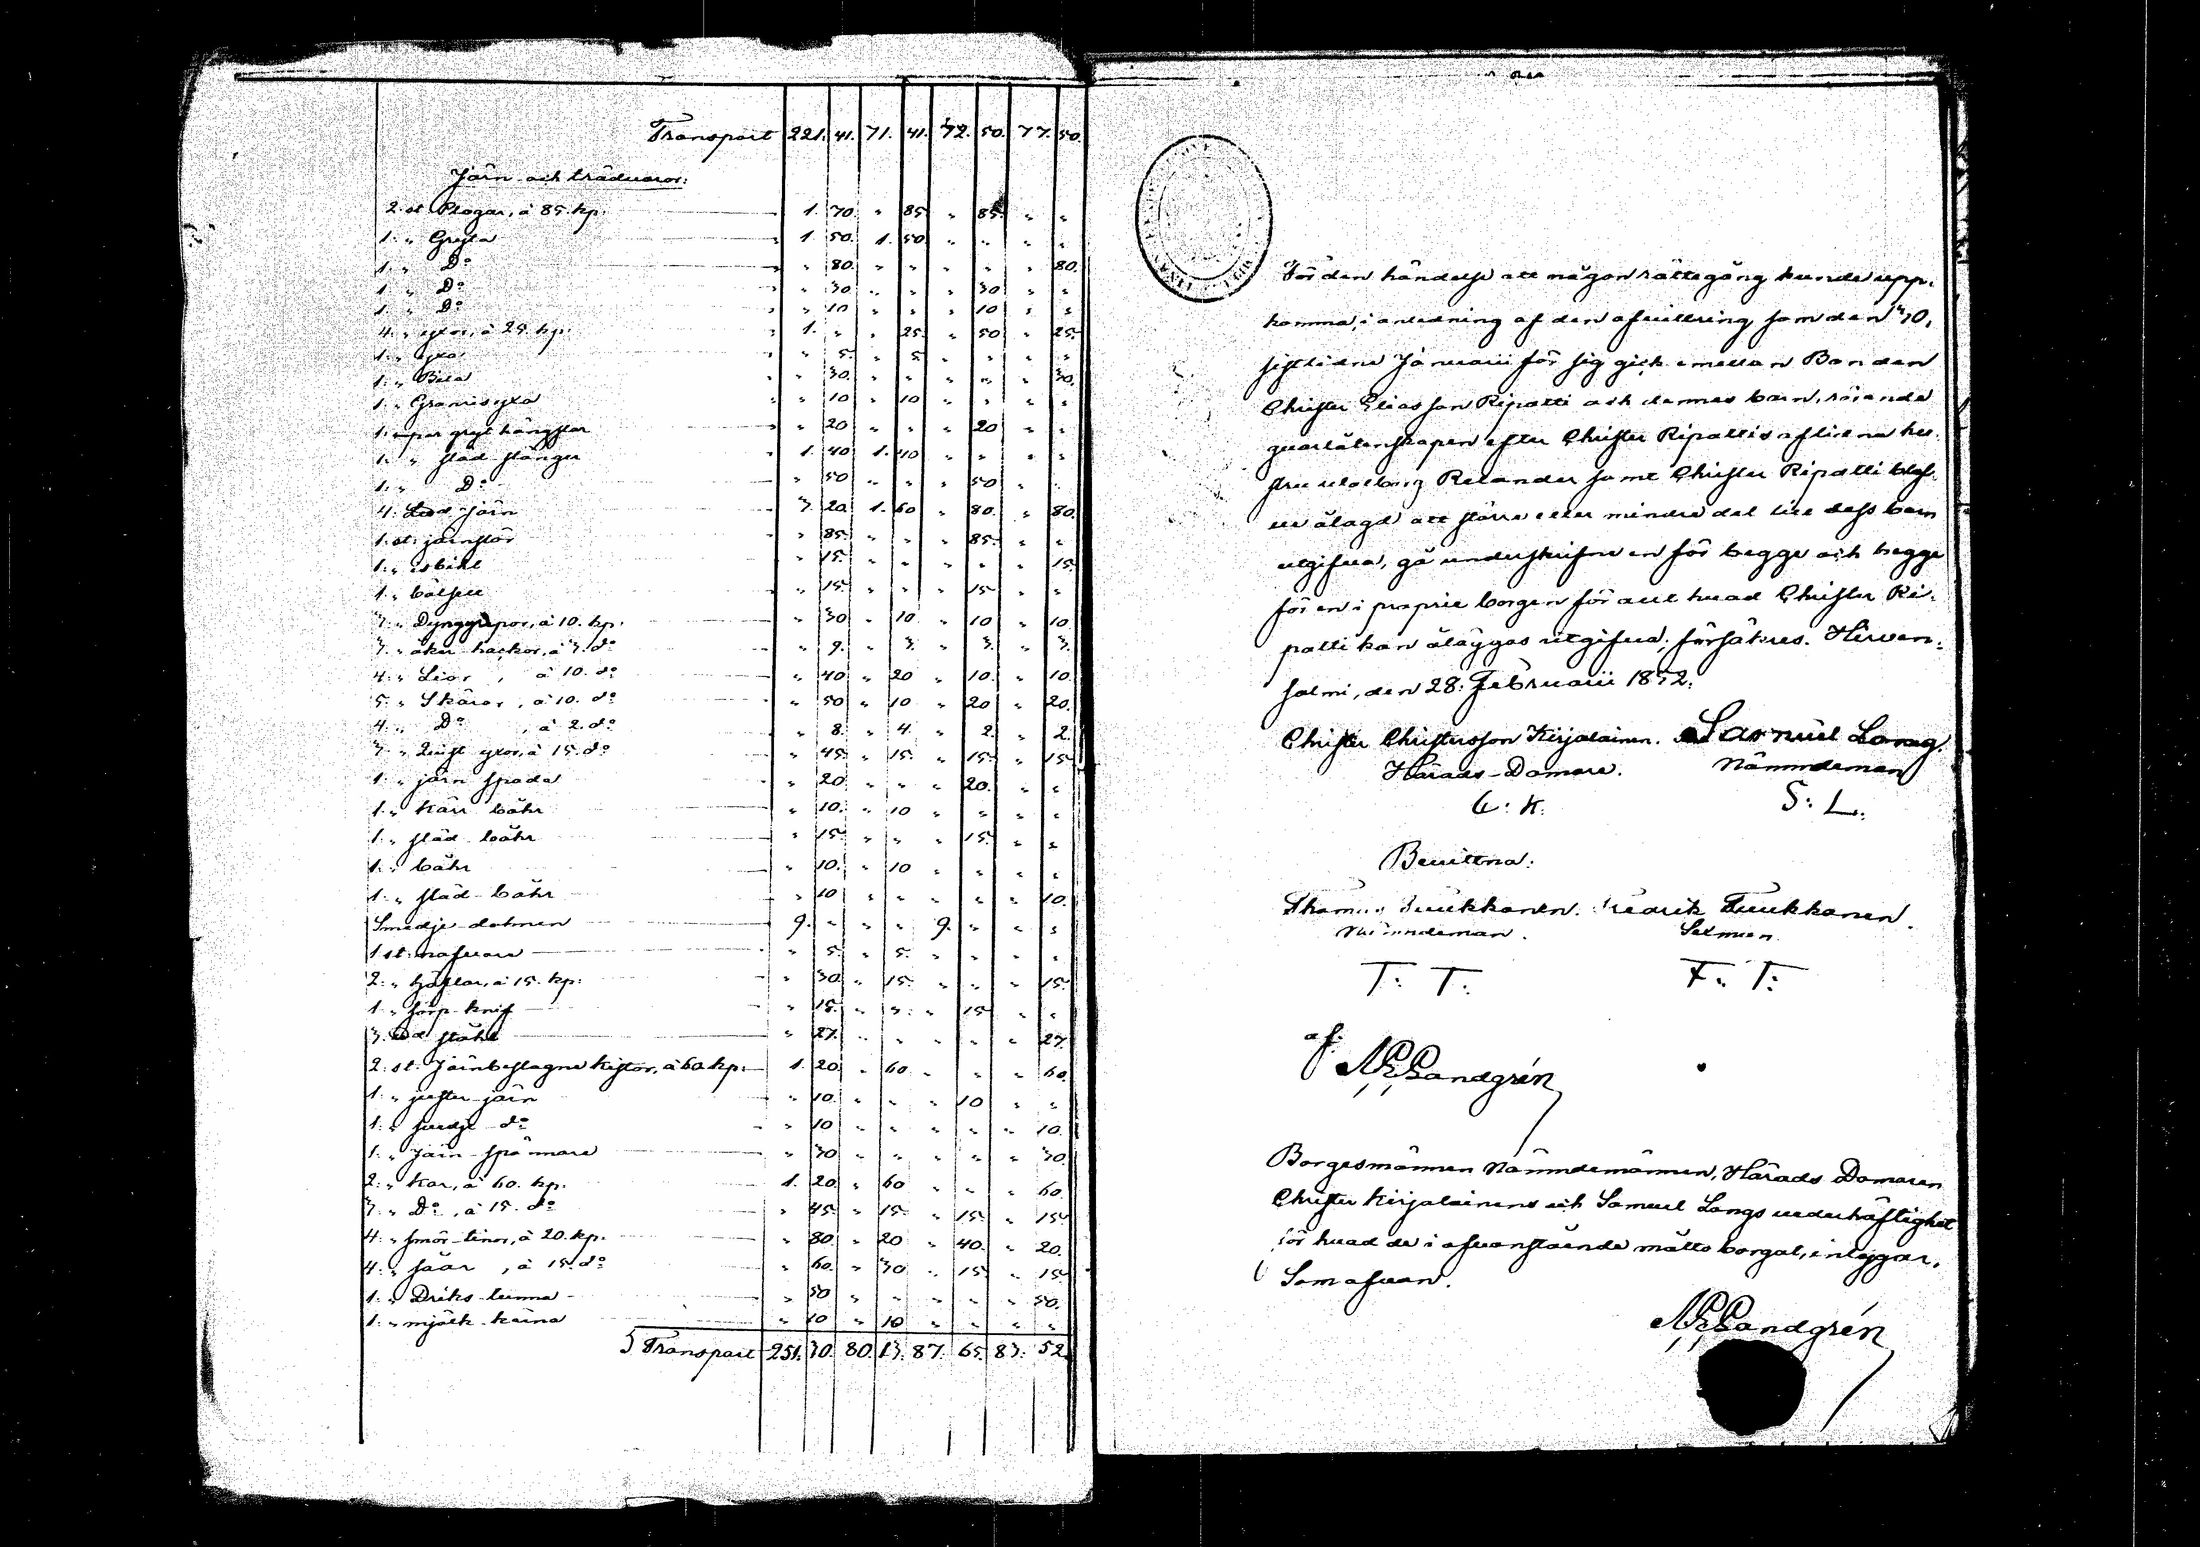 Transport 221. 41. 71. 41. 72. 50. 77. 50.
Järn och trädvaror:
2. st. Plogar, à 85. kp. 1. 70. " 85. " 85. " "
1. " Gryta 1. 50. 1. 50. " " " "
1. " Do " 80. " " " " " 80.
1. " Do " 30 " " " 30 " "
1. " Do " 10 " " " 10 " "
4. " yxor, à 25. kp. 1. " " 25. " 50 " 25.
1. " yxa " 5. " 5. " " " "
1. " Bila " 30. " " " " " 30.
1. " yxa " 10 " 10 " " " "
1. " par gryt hängslar " 20 " " " 20 " "
1. " " städ stänger 1. 40 1. 40 " " " "
1. " Do " 50 " " " 50 " "
4. Lod järn 3. 20. 1. 60 " 80. " 80.
1. st. järnstör " 85. " " " 85. " "
1. " isbill " 15. " " " " " 15.
1. " " 15. " " " 15 " "
3. " Dynggrepor, à 10. kp. " 30 " 10 " 10 " 10
3. " åker hackor, à 3. do " 9. " 3. " 3. " 3.
4. " Liar, à 10. do " 40 " 20 " 10. " 10.
5. " Skäror, à 10. do " 50 " 10 " 20 " 20.
4. " Do, à 2. do " 8. " 4. " 2. " 2.
3. " yxor, à 15. do " 45. " 15. " 15. " 15
1. " järn spada " 20 " " " 20. " "
1. " kärr båhr " 10. " 10 " " " "
1. " städ båhr " 15. " " " 15. " "
1. " båhr " 10. " 10 " " " "
1. " städ båhr " 10 " " " " " 10.
Smedje dolmen 9. " " " 9. " " "
1 st. nafvare " 5. " 5. " " " "
2. " à 15. kp. " 30. " 15. " " " 15.
1. " knif " 15. " " " 15 " "
3. stål " 27. " " " " " 27.
2. st. Järnbeslagne kistor, à 60 kp. 1. 20. " 60. " " " 60.
1. " järn " 10. " " " 10 " "
1. " do " 10 " " " " " 10.
1. " Järn spännare " 30 " " " " " 30.
2. " Kar, à 60. kp. 1. 20. " 60 " " " 60.
3. " Do, à 15. do " 45. " 15. " 15. " 15.
4. " smör tinor, à 20. kp. " 80 " 20 " 40. " 20.
4. " såar, à 15. do " 60. " 30 " 15. " 15
1. " Driks tunna " 50 " " " " " 50.
1. " mjölk kärna " 10 " 10 " " " "
Transport 251. 30. 80. 13. 87. 65. 83. 52.
För den händelse att någon rättegång kunde upp-
komma, i anledning af den afvittring som den 30,
sistlidne Januarii för sig gick emellan Bonden
Christer Eliasson Ripatti och dennes barn, rörande
qvarlåtenskapen efter Christer Ripattis aflidna hu-
stru Relander samt Christer Ripatti blef-
ve ålagd att större eller mindre del till dess barn
utgifva, gå underskrifne en för begge och begge
för en i proprie borgen för allt hvad Christer Ri-
patti kan åläggas utgifva; försäkras. Hirven-
salmi, den 28. Februarii 1852.
Christer Christersson Kirjalainen. Samuel Lang.
Härads-Domare. Nämndeman
C: K. S: L.
Bevittna:
Thomas Tuukkanen. Fredrik Tuukkanen.
Nämndeman.
T: T: F: T:
af.
Landgrén
Borgesmännen Nämndemännen, Härads Domaren
Christer Kirjalainens och Samuel Langs vederhäftighet
för hvad de i ofvanstående måtto borgat, intygar,
Som ofvan.
Landgrén